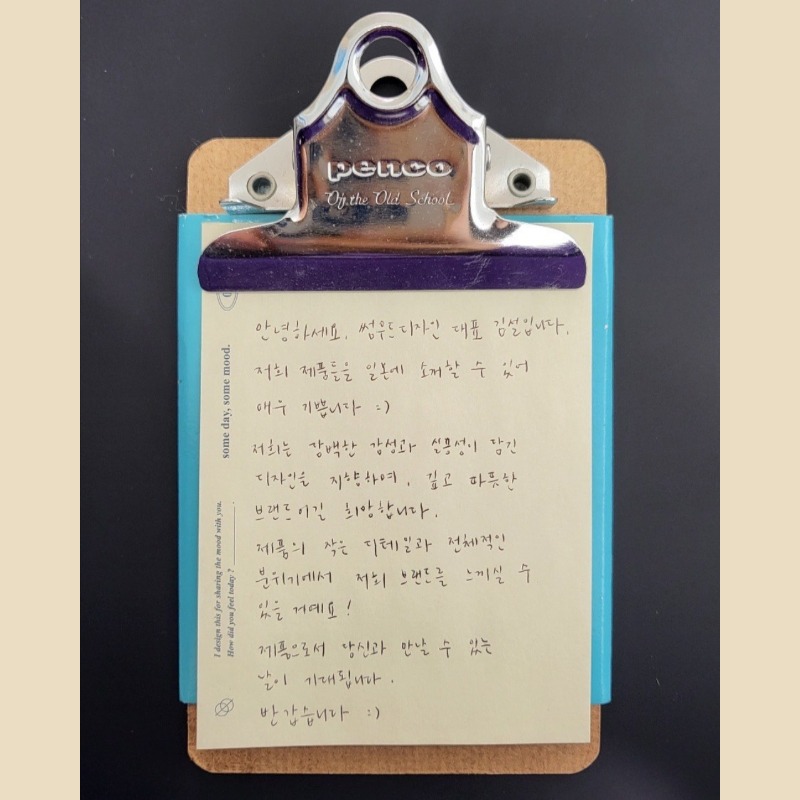 penco
On the Old School
안녕하세요, 썸무드디자인 대표 김설입니다.
저희 제품들을 일본에 소개할 수 있어
매우 기쁩니다 :)
저희는 담백한 감성과 실용성이 담긴
디자인을 지향하며, 깊고 따뜻한
브랜드이길 희망합니다.
제품의 작은 디테일과 전체적인
분위기에서 저희 브랜드를 느끼실 수
있을 거예요!
제품으로서 당신과 만날 수 있는
날이 기대됩니다.
반갑습니다 :)
some day, some mood.
I design this for sharing the mood with you.
How did you feel today?